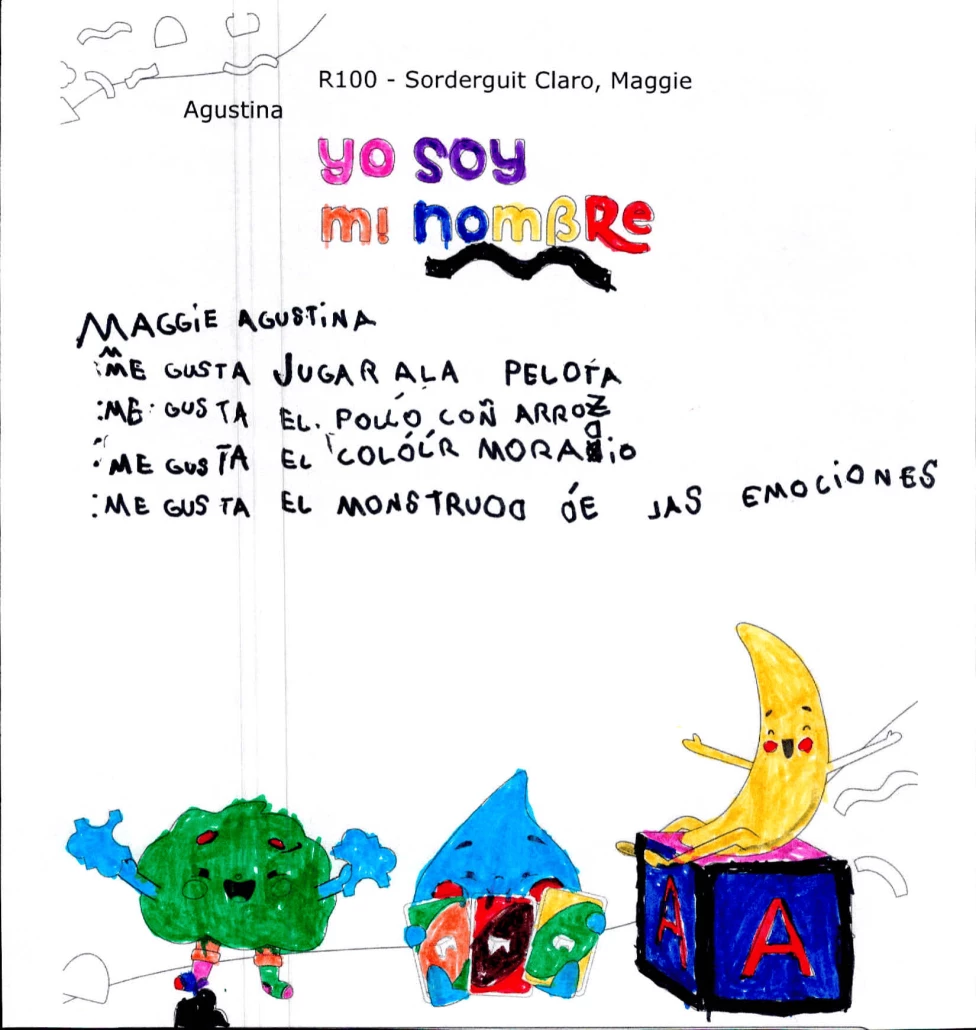 R100 - Sorderguit Claro, Maggie
Agustina
yo soy
mi nomBRe
MAGGiE AGUSTiNA
ME GUSTA JUGAR ALA PELOTA
:ME GUSTA EL. POLLO COÑ ARROZ
ME GUSTA EL COLOR MORADO
:ME GUSTA EL MONSTRUO DE LAS EMOCiONES
A A